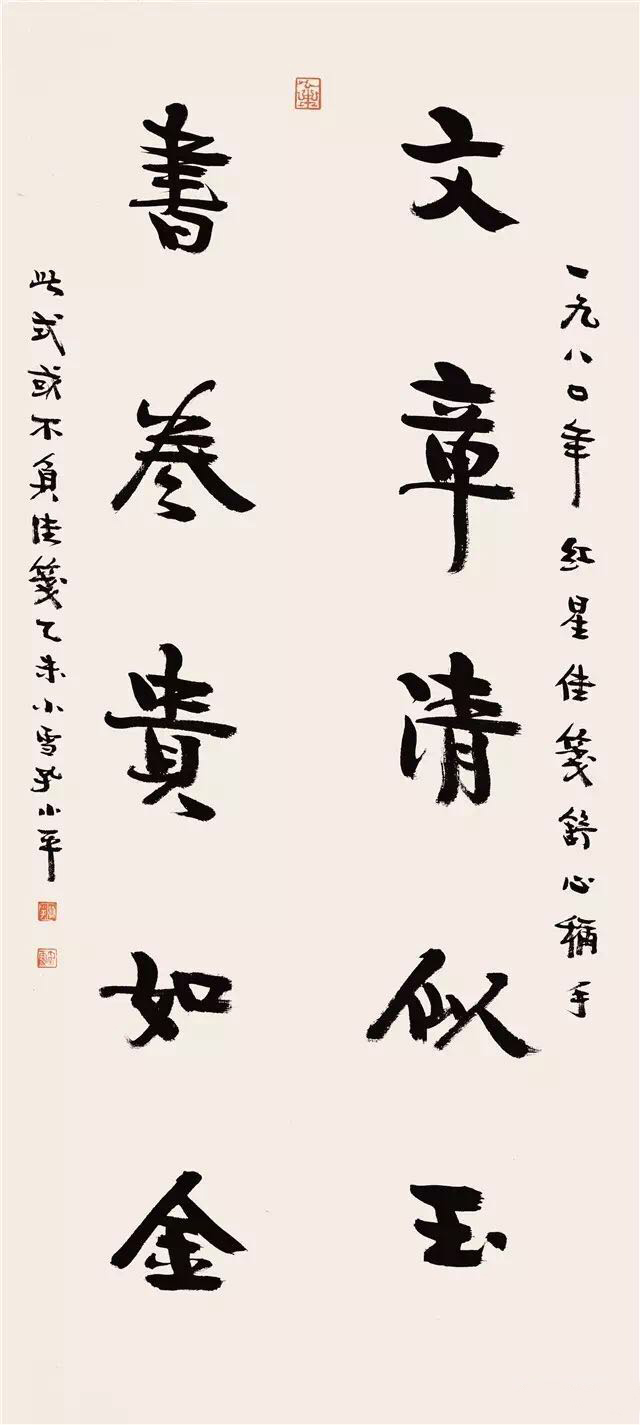 一九八〇年红星佳笺舒心称手
文章清似玉
書卷貴如金
此式或不負佳箋乙未小雪孔小平